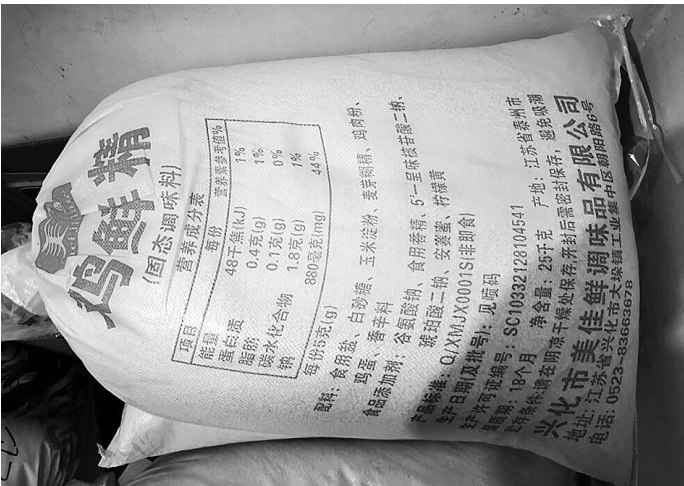 鸡鲜精
(固态调味料)
营养成分表
项目 每份 营养素参考值%
能量 48千焦(kJ) 1%
蛋白质 0.4克(g) 1%
脂肪 0.1克(g) 0%
碳水化合物 1.8克(g) 1%
钠 880毫克(mg) 44%
每份5克(g)
配料: 食用盐、白砂糖、玉米淀粉、麦芽糊精、鸡肉粉、
鸡蛋、香辛料
食品添加剂: 谷氨酸钠、食用香精、5'-呈味核苷酸二钠、
琥珀酸二钠、安赛蜜、柠檬黄
产品标准: Q/XMJX0001S(非即食)
生产日期(及批号): 见喷码
生产许可证编号: SC10332128104541
保质期: 18个月 净含量: 25千克 产地: 江苏省泰州市
贮存条件:请在阴凉干燥处保存,开封后需密封保存,避免吸潮
兴化市美佳鲜调味品有限公司
地址: 江苏省兴化市大垛镇工业集中区朝阳路6号
电话: 0523-83663678